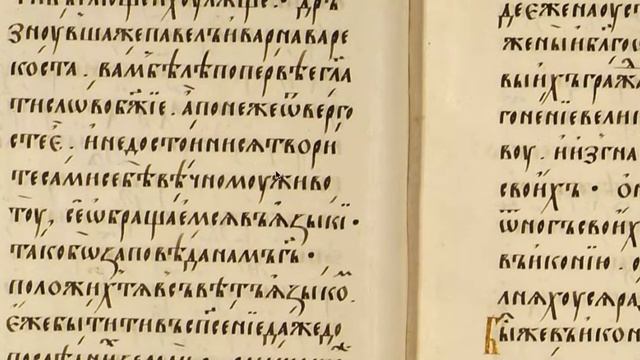 зноувшажепавелъиварнаваре
коста. вамбѣлѣпопервѣегл҃а
тисловобж҃їе. апонежеѿверго
стеѐ. инедостоинисятвори
тесамисебѣвѣчномоуживо
тоу, сеѡбращаемсявъязыкї·
такобѡзаповѣданамъг҃ь·
положихтявсъвѣтъязыкѡⷨ.
ежебытитивъсп҃сенїедажедо
женыиблг҃ос
выихъгража
гоненїевели
воу. иизгна
своихъ· ѻ
ѿногъсвоих
въиконїю. о
лняхоусяра
быжевъикон